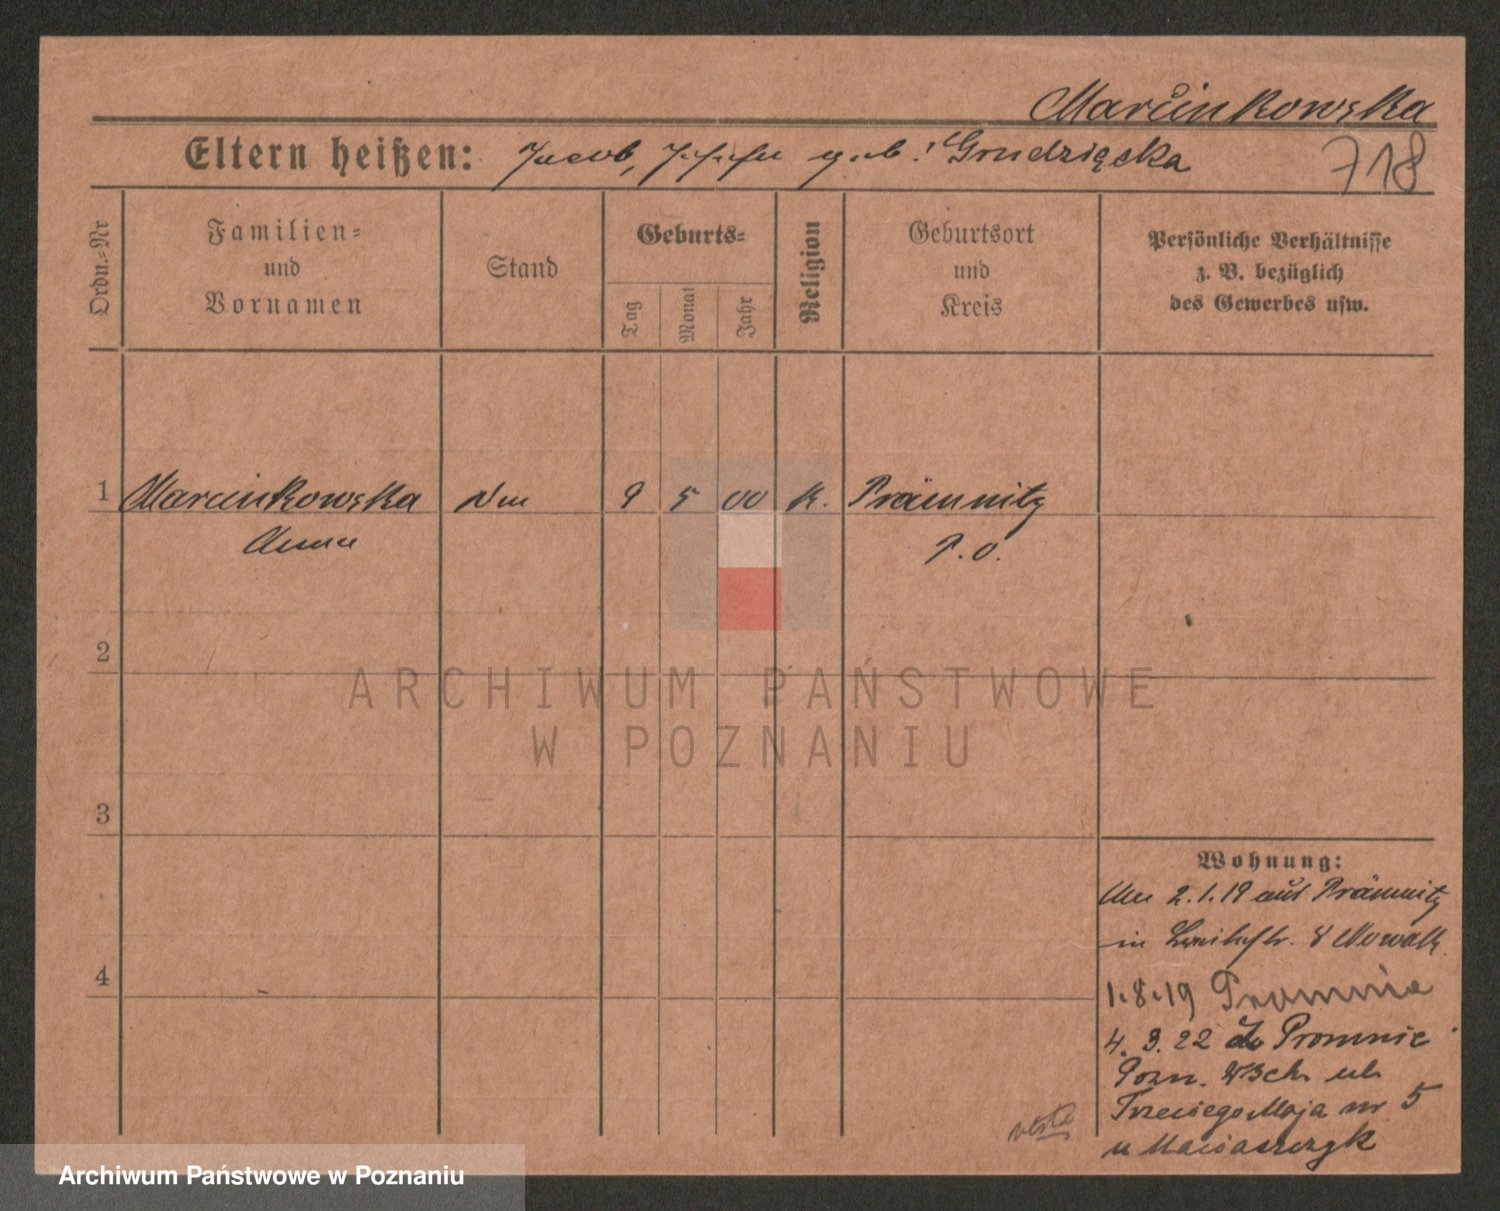 Marcinkowska
Eltern heißen: Jacob, Josefa geb. Grudziącka
718
Ordn.-Nr
Familien-
und
Vornamen
Stand
Geburts-
Tag
Monat
Jahr
Religion
Geburtsort
und
Kreis
Persönliche Verhältnisse
z. B. bezüglich
des Gewerbes usw.
1 Marcinkowska 9 5 00 K. Prämnitz
Anna P. O.
2
3
4
ARCHIWUM PAŃSTWOWE
W POZNANIU
Wohnung:
2.1.19 aus Prämnitz
in 8 Nowak
1.8.19 Promnice
4. 3. 22 do Promnic
Pozn. Wsch. ul.
Trzeciego Maja nr 5
u Maciaszczyk
Archiwum Państwowe w Poznaniu